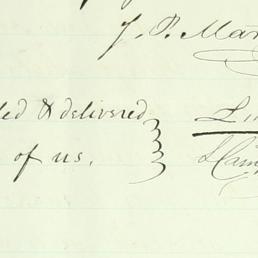 J. P. Mar
led & delivered
of us.